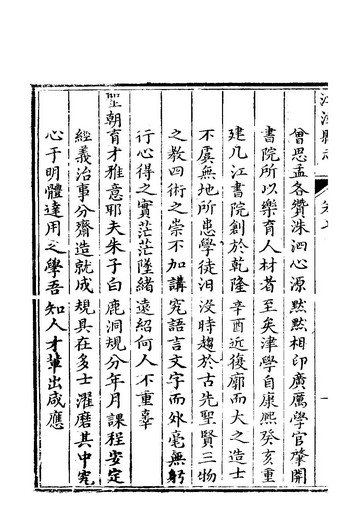 曾思孟各纘洙泗心源默默相印廣厲學官肇開
書院所以樂育人材者至矣津學自康熙癸亥重
建几江書院創於乾隆辛酉近復廓而大之造士
不虞無地所患學徒汨沒時趨於古先聖賢三物
之教四術之崇不加講究語言文字而外毫無躬
行心得之實茫茫墜緒遠紹何人不重辜
聖朝育才雅意耶夫朱子白鹿洞規分年月課程安定
經義治事分齋造就成規具在多士濯磨其中究
心于明體達用之學吾知人才輩出咸應